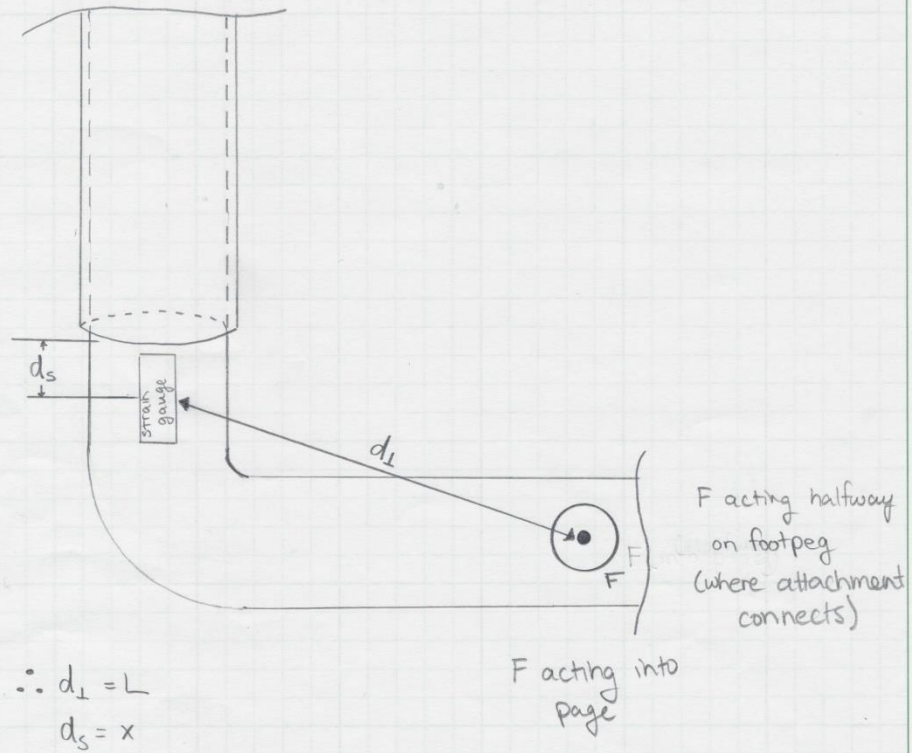 dₛ
strain
gauge
d⊥
F
F
F acting halfway
on footpeg
(where attachment
connects)
F acting into
page
∴ d⊥ = L
dₛ = x